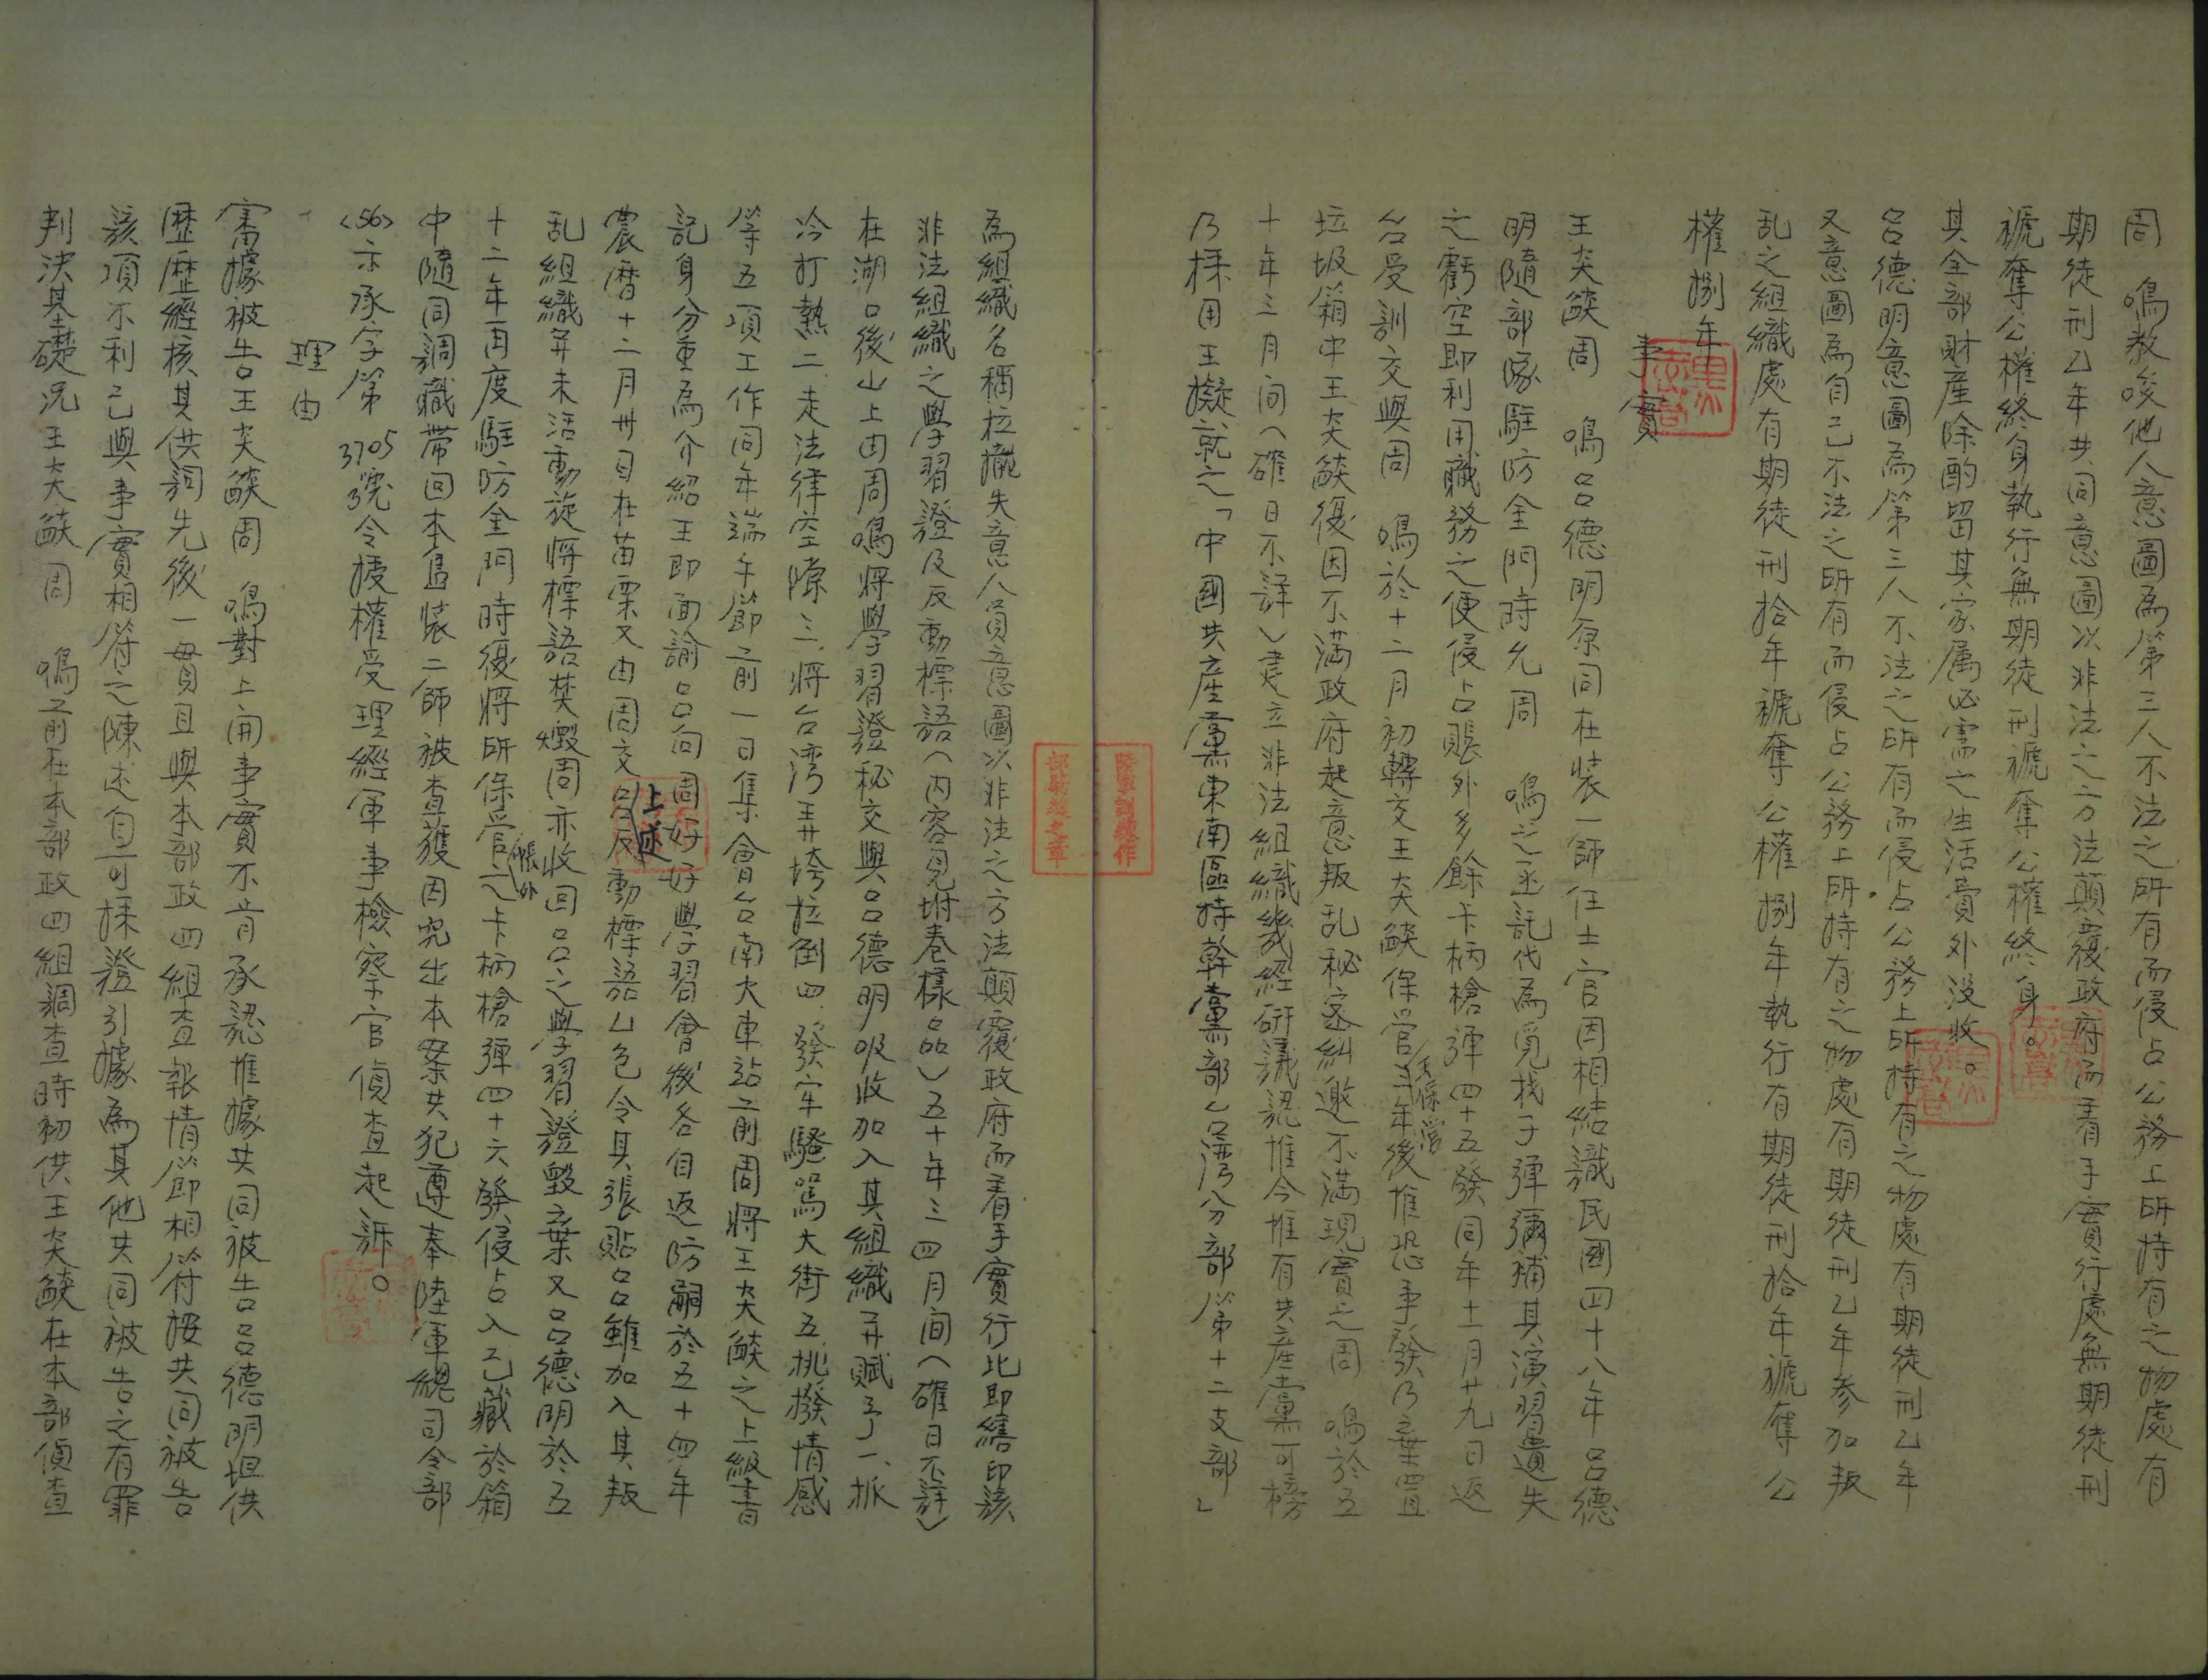 周　鳴教唆他人意圖為第三人不法之所有而侵占公務上所持有之物處有
期徒刑乙年共同意圖以非法之方法顛覆政府而着手實行處無期徒刑
褫奪公權終身執行無期徒刑褫奪公權終身。
其全部財產除酌留其家属必需之生活費外沒收。
呂德明意圖為第三人不法之所有而侵占公務上所持有之物處有期徒刑乙年
又意圖為自己不法之所有而侵占公務上所持有之物處有期徒刑乙年参加叛
乱之組織處有期徒刑拾年褫奪公權捌年執行有期徒刑拾年褫奪公
權捌年
事實
王炎燄周　鳴呂德明原同在裝一師任士官因相結識民國四十八年呂德
明隨部隊駐防金門時允周　鳴之函託代為覓找子彈彌補其演習遺失
之虧空即利用職務之便侵占賬外多餘卡柄槍彈四十五發同年十一月廿九日返
台受訓交與周　鳴於十二月初轉交王炎燄保管半年後惟恐事發乃棄置
王保管
垃圾箱中王炎燄復因不滿政府起意叛乱秘密糾邀不滿現實之周　鳴於五
十年三月间（確日不詳）建立非法組織幾經研議認惟今惟有共產黨可榜
乃採用王擬就之「中國共産黨東南區特幹黨部台湾分部第十二支部」
為組織名稱拉攏失意人員意圖以非法之方法顛覆政府而着手實行比即繕印該
非法組織之學習證及反動標語（内容見坿卷樣品）五十年三四月间（確日不詳）
在湖口後山上由周鳴將學習證秘交與呂德明吸收加入其組織并賦予一、抓
冷打熱二、走法律空隙三、將台湾王井垮拉倒四、發牢騷罵大街五、挑撥情感
等五項工作同年端午節前一日集會台南火車站前周將王炎燄之上級書
記身分重為介紹王即面諭呂向周好好學習會後各自返防嗣於五十四年
農曆十二月卅日在苗栗又由周交呂反動標語乙包令其張貼呂雖加入其叛
上述
乱組織并未活動旋將標語焚燬周亦收回呂之學習證毀棄又呂德明於五
十二年再度駐防金門時復將所保管之卡柄槍彈四十六發侵占入己藏於箱
帳外
中隨同調職帶回本島裝二師被查獲因究出本案共犯遵奉陸軍總司令部
<56>示承字第3705號令授權受理經軍事檢察官偵查起訴。
理由
一　審據被告王炎燄周　鳴對上開事實不肯承認惟據共同被告呂德明坦供
歴歴經核其供詞先後一貫且與本部政四組查報情節相符按共同被告
該項不利己與事實相符之陳述自可採證引據為其他共同被告之有罪
判決基礎況王炎燄周　鳴前在本部政四組調查時初供王炎燄在本部偵查